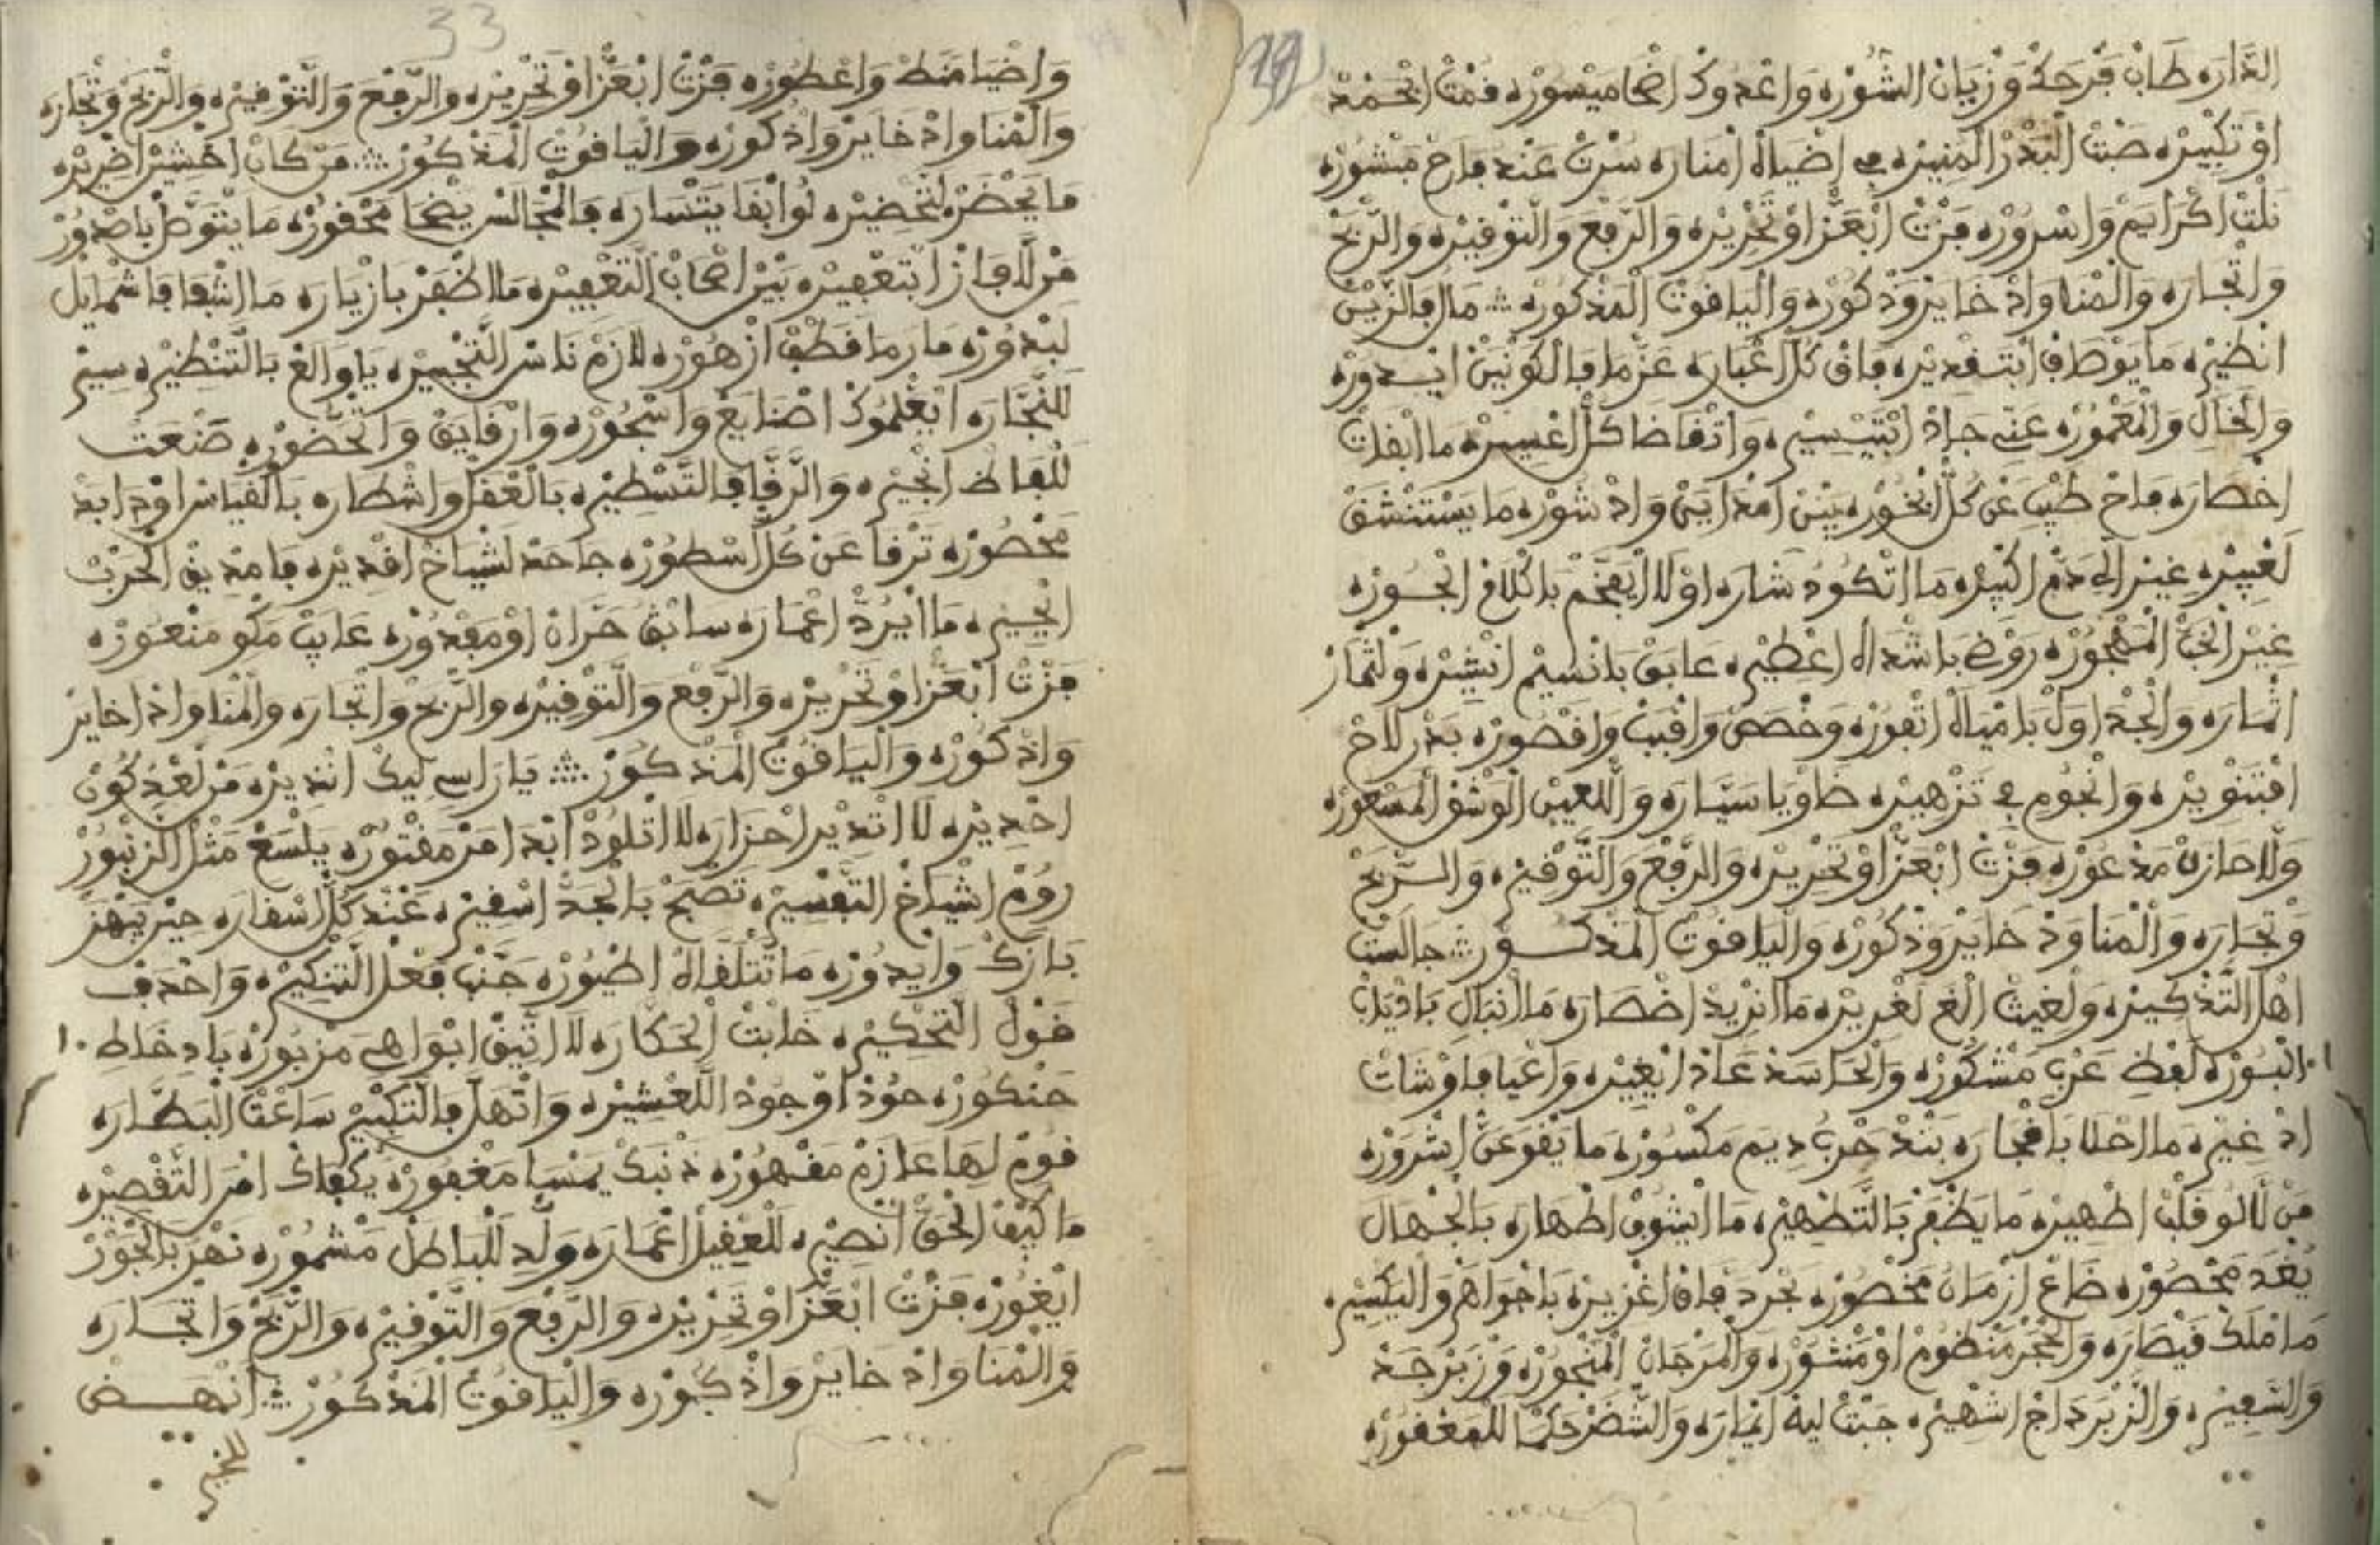 الدارة طاب فرحك وزيان الشورة واعدوك اضحا ميسورة فمت ابحمد
او تكبيره صنت البدر المنيره في اضياه امنارة سرت عند فاح منشوره
نلت اكرايم واسروره فزت ابعز او تحريزه والرفع والتوفيره والربح
واتجاره والمنا واذخايز وذكوره والياقوت المذكوره ۞ مال فالزين
انظيره ما يوطاق ابتقديره فاق كل اعباره عزما فالكونين ايدوره
والحال والمعموره عني جاد ابتيسيره واتقاضا كل اغسيره ما ابقات
اخصاره فاح طيب عن كل ابخوره بين امداين واد شوره ما يستنشق
لغبيره غير الي دم اكبيره ما اتكود شاره او لا ايفخم باكلاع الجوزه
غير الخب المهجوره روض باشداه اعطيره عابق بانسيم انشيره ولثمار
اثماره والجداول باامياه اتفوره وخصص واقبب واقصوره بدر لاح
افتنويره وانجوم في تزهيره ضاويا سياره واللعين الوشق المسعوره
ولا حازه مذعوره فزت ابعز او تحريزه والرفع والتوفيره والربح
وتجاره والمنا وذخايز وذكوره والياقوت المذكور ۞ جالست
اهل التذكيره ولغيت الغ لغريره ما انريد اخصاره ما انبال باديات
البوره لفظ عرب مشكوره والحاسد عاد ابغيره واعيا فاوشات
اد غيره ما احلا بافجاره بند حرب ديم مكسوره ما يقوعن اشروره
من لا لو قلب اظهيره ما يظفر بالتظهيره ما ايشوف اظهاره بالجهال
بعد محصوره ضاع ازمان مخصوره بحرد فاق اغزيره باجواهر واليكسيره
ما املك قيصاره والحجر منظوم او منثوره والمرجان المنحوره وزبرجد
والشعيره والزبرداج اشهيره جبت ليه انماره والشضر حكما للمعفوره
واضيا منط واعطوره فزت ابعز او تحريزه والرفع والتوفيره والربح وتجاره
والمنا واذخايز واذكوره والياقوت المذكور ۞ من كان اخشير اضريره
ما يحضر التحضيره لو ابقا يتساره فالمجالس يضحا محقوره ما يتوطا باصدور
من لا فاز ابتعفيره بين اصحاب التعفيره ما اظفر بازياره ما اشفا فاشمايل
لبدوره مار ما قطف ازهوره لازم ناس التجسيره يا والغ بالتنظيره سير
للنجاره ايعلموك اصنايع واسجوره وارقايق والحضوره صنعت
للفاظ انجيره والرقا فالتسطيره بالعقل واشطاره بالقياس او دا بد
محصوره ترقا عن كل اسطوره جاحد لشياخ اقديره فا مديق الحرب
انجيره ما ايرد اعماره سابق حران او مقدوره عايب مكو منعوره
فزت ابعز او تحريزه والرفع والتوفيره والربح واتجاره والمنا واذخايز
واذكوره والياقوت المذكور ۞ يا راسي ليك انديره من لغدكون
احذيره لا اتدير احزاره لا اتلود ابدا من مفتوره يلسع مثل الزنبور
روم اشياخ التفسيره تصبح بالجد اسفيره عند كل اسفاره حين ينهز
بازك وايدوره ما تتلقاه اطيوره جنب فعل التنكيره واحدف
قول التحكيره خابت الحكاره لا اتيق ابواهي مزبوره باد خاط
حنكوره حود او جود اللعشيره وانهل فالتكبير ساعت البضاره
قوم لها عازم مفهوره ذنبك يمسا مغفوره يكفاك امر التقصيره
ما كيف الحق انصيره للعفيل اعماره ولد للباطل مشموره نهر بالجور
ايغوره فزت ابعز او تحريزه والرفع والتوفيره والربح واتجاره
والمنا واذخايز واذكوره والياقوت المذكور ۞ انهض